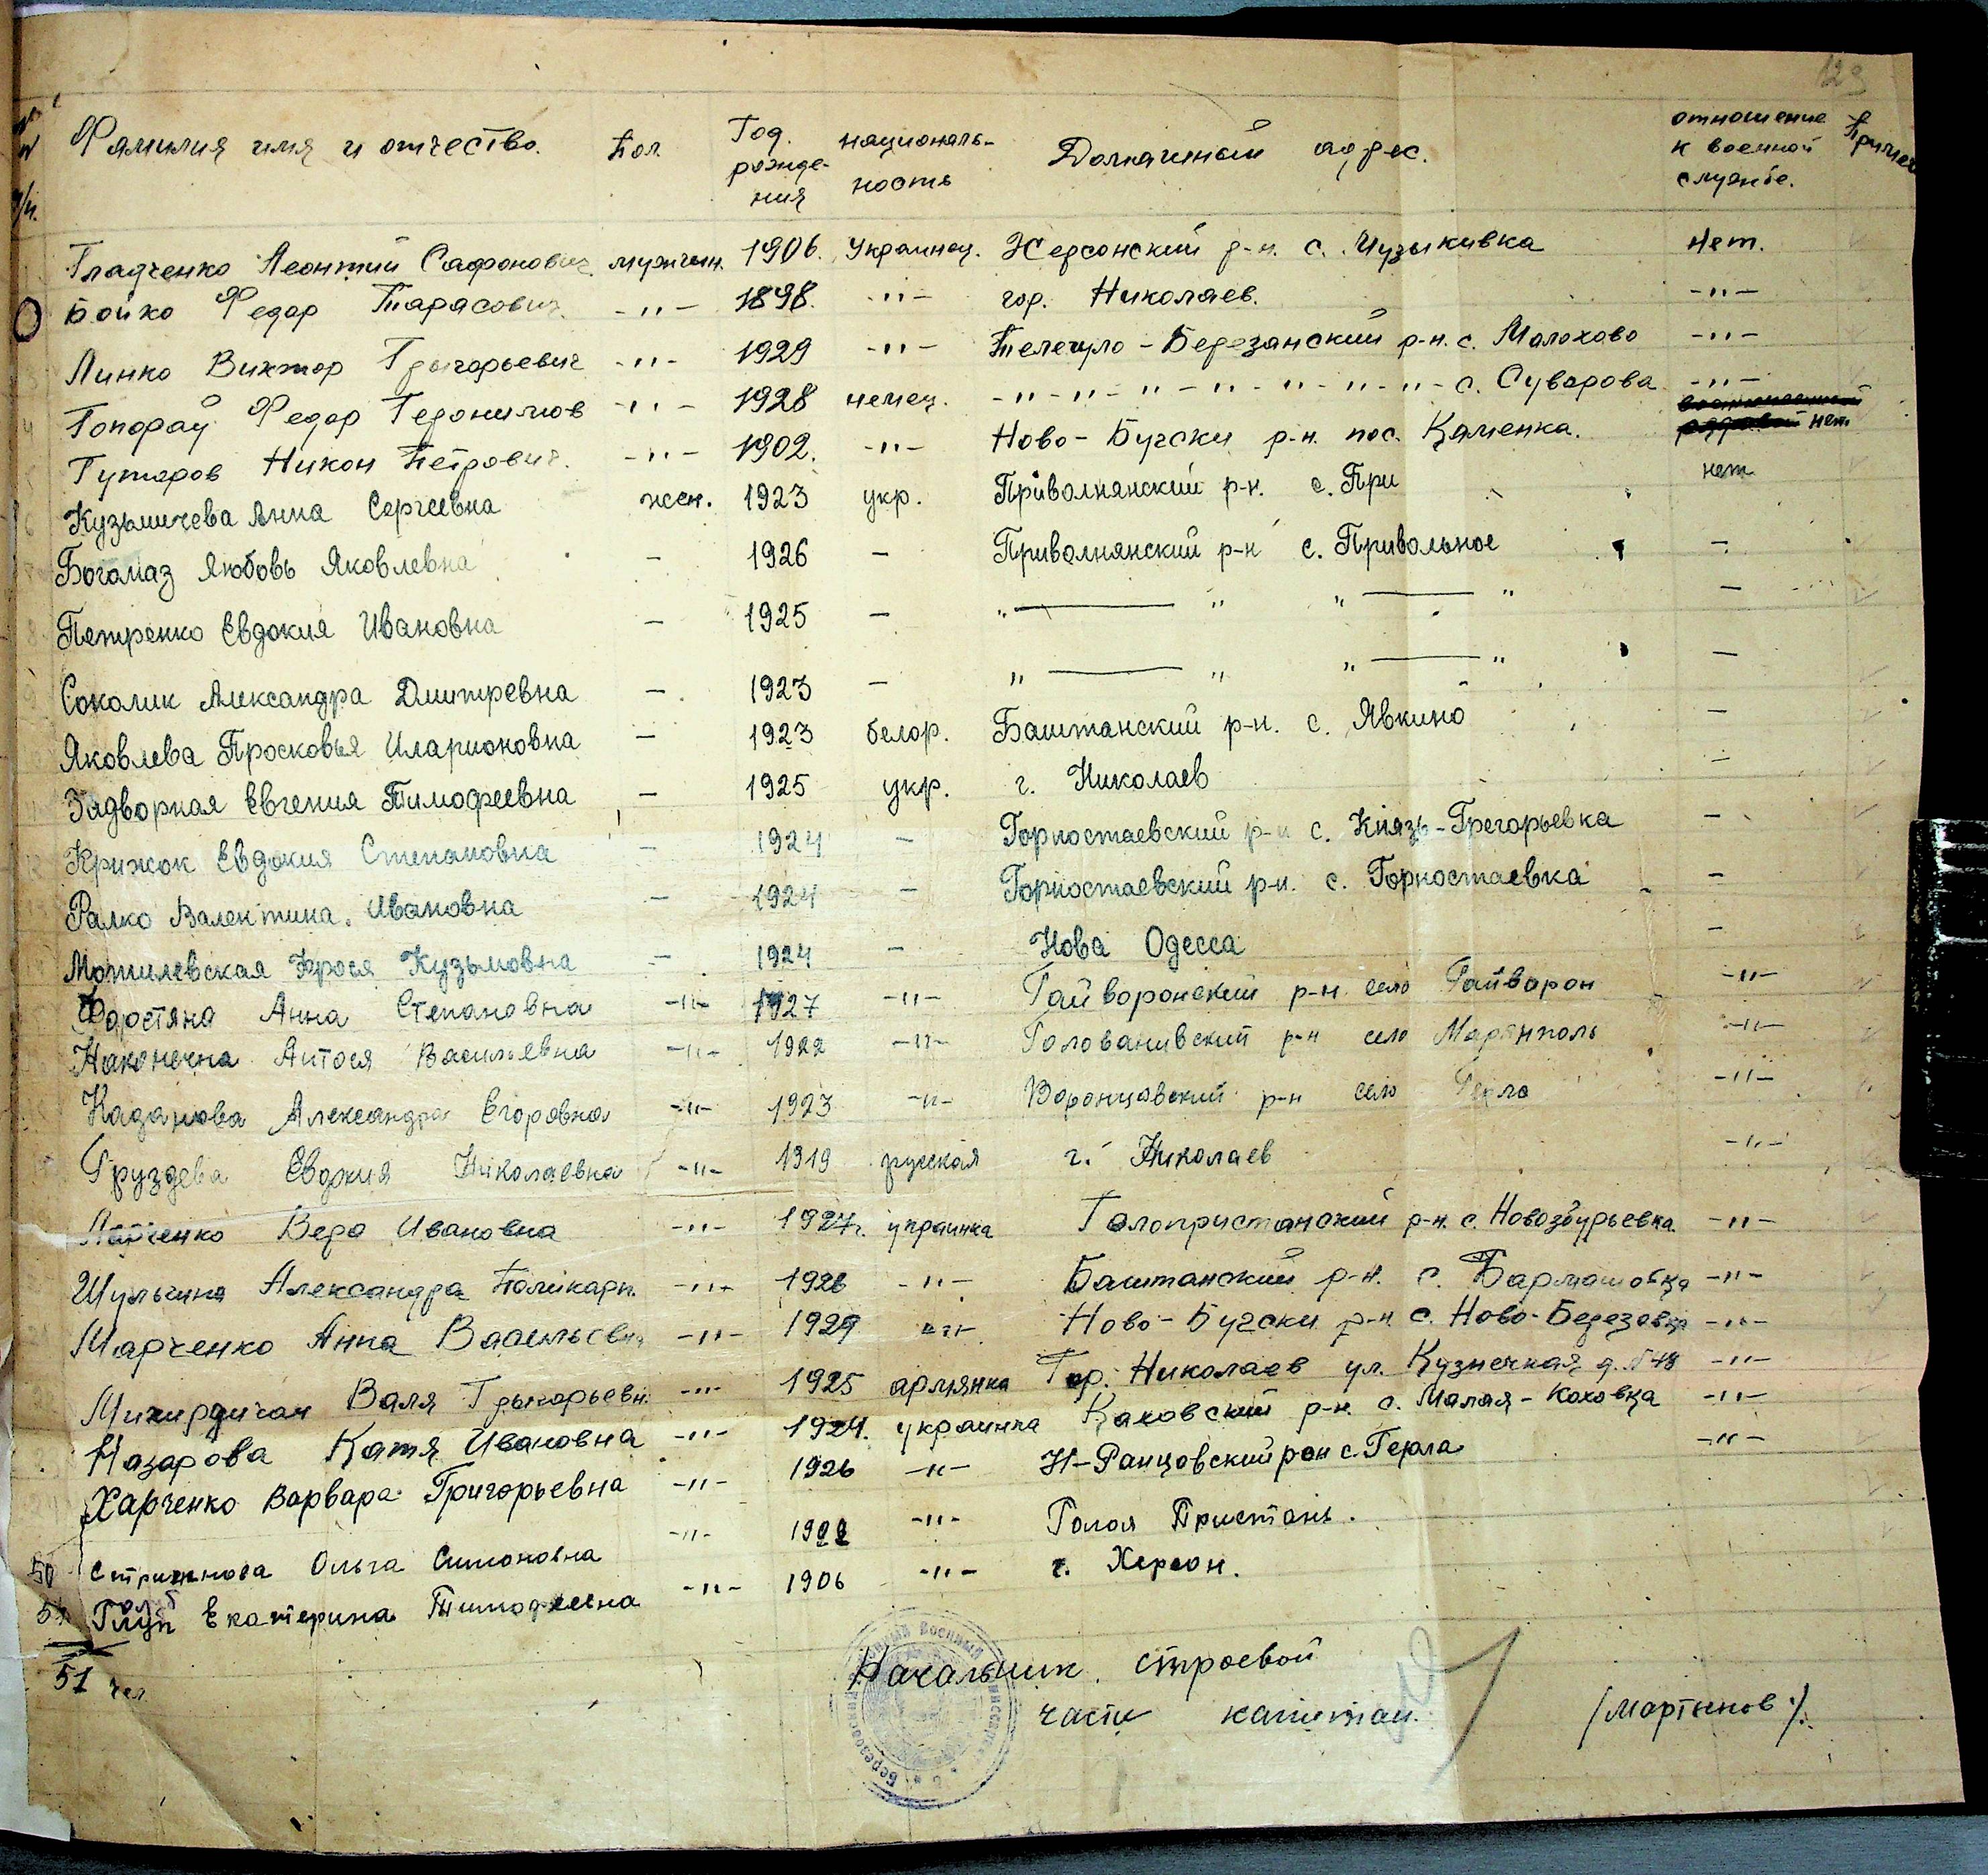 123
№ п/п. Фамилия имя и отчество. Пол. Год рожде-ния националь-ность Домашний адрес. отношение к военной службе. Примеч
Гладченко Леонтий Сафонович мужчин. 1906. Украинец. Херсонский р-н. с. Чузыкивка нет.
Бойко Федор Тарасович. -"- 1898. -"- гор. Николаев. -"-
Линко Виктор Григорьевич -"- 1929 -"- Телегуло-Березанский р-н. с. Малахово -"-
4 Гопорау Федор Геронимов -"- 1928 немец. -"-"-"-"-"-"-"- с. Суворова -"-
Гутяров Никон Петрович. -"- 1902. -"- Ново-Бугски р-н. пос. Каменка. нет
6 Кузьмичева Анна Сергеевна жен. 1923 укр. Приволнянский р-н. с. При нет
Богомаз Любовь Яковлевна - 1926 - Приволнянский р-н с. Привольное -
8 Петренко Евдокия Ивановна - 1925 - "———" "———" -
9 Соколик Александра Дмитревна - 1923 - "———" "———" -
Яковлева Просковья Иларионовна - 1923 белор. Баштанский р-н. с. Явкино -
Задворная Евгения Тимофеевна - 1925 укр. г. Николаев -
12 Крижок Евдокия Степановна - 1924 - Горностаевский р-н с. Князь-Грегорьевка -
Ралко Валентина Ивановна - 1924 - Горностаевский р-н. с. Горностаевка -
Могилевская Фрося Кузьмовна - 1924 - Нова Одесса -
Форстяна Анна Степановна -"- 1927 -"- Гайворонский р-н село Гайварон -"-
Наконечна Антося Васильевна -"- 1922 -"- Голованивский р-н село Марянполь -"-
Казанова Александра Егоровна -"- 1923 -"- Воронцовский р-н село Герло -"-
Груздева Евдокия Николаевна -"- 1919 русская г. Николаев -"-
Вера Ивановна -"- 1924г. украинка Голопристанский р-н. с. Новозбурьевка -"-
Шульгина Александра Полікарп. -"- 1926 -"- Баштанский р-н. с. Бармашовка -"-
Марченко Анна Васильевн. -"- 1929 -"- Ново-Бугски р-н. с. Ново-Березовка -"-
Мигирдичан Валя Григорьевн. -"- 1925 армянка Гор. Николаев ул. Кузнечная д. №48 -"-
Назарова Катя Ивановна -"- 1924. украинка Каховский р-н. с. Малая-Каховка -"-
Харченко Варвара Григорьевна -"- 1926 -"- Н-Ранцовский рон с. Герла -"-
50 Стрижнова Ольга Симоновна -"- 1922 -"- Голая Пристань.
51 Глуп Екатерина Тимофеевна -"- 1906 -"- г. Херсон.
51 чел
Начальник строевой
части капитан. /Мартынов/.